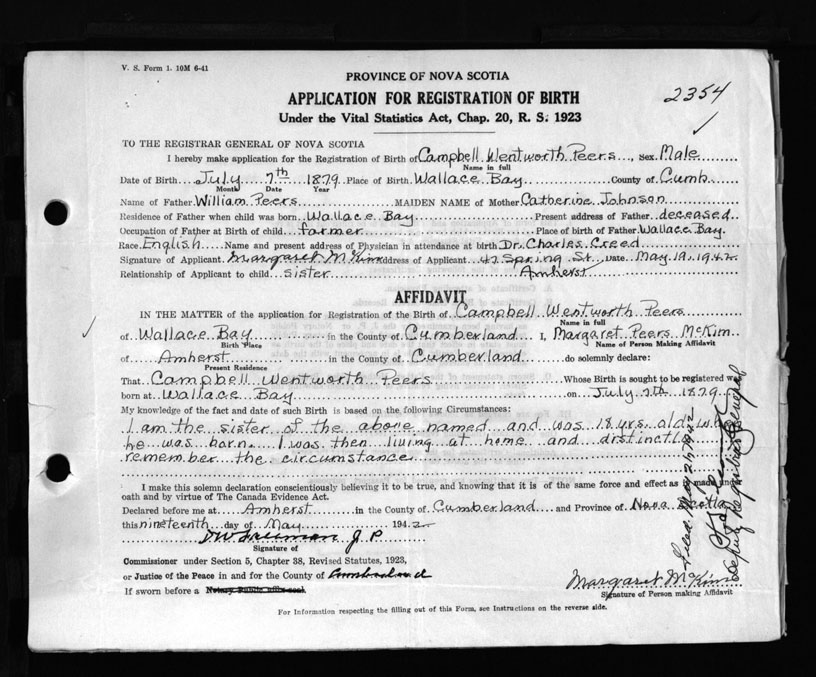 V. S. Form 1. 10M 6-41
PROVINCE OF NOVA SCOTIA
2354
APPLICATION FOR REGISTRATION OF BIRTH
Under the Vital Statistics Act, Chap. 20, R. S. 1923
TO THE REGISTRAR GENERAL OF NOVA SCOTIA
I hereby make application for the Registration of Birth of Campbell Wentworth Peers, Sex Male
Name in full
Date of Birth July 7th 1879 Place of Birth Wallace Bay County of Cumb
Month Date Year
Name of Father William Peers MAIDEN NAME of Mother Catherine Johnson
Residence of Father when child was born Wallace Bay Present address of Father deceased
Occupation of Father at Birth of child farmer Place of birth of Father Wallace Bay
Race English Name and present address of Physician in attendance at birth Dr. Charles Creed
Signature of Applicant Margaret McKim Address of Applicant 47 Spring St. Date May 19 1942
Relationship of Applicant to child sister Amherst
AFFIDAVIT
IN THE MATTER of the application for Registration of the Birth of Campbell Wentworth Peers
Name in full
of Wallace Bay in the County of Cumberland I, Margaret Peers McKim
Birth Place Name of Person Making Affidavit
of Amherst in the County of Cumberland do solemnly declare:
Present Residence
That Campbell Wentworth Peers Whose Birth is sought to be registered was
born at Wallace Bay on July 7th 1879
My knowledge of the fact and date of such Birth is based on the following Circumstances:
I am the sister of the above named and was 18 yrs. old
he was born. I was then living at home and distinctly
remember the circumstance
I make this solemn declaration conscientiously believing it to be true, and knowing that it is of the same force and effect as if made under
oath and by virtue of The Canada Evidence Act.
Declared before me at Amherst in the County of Cumberland and Province of Nova Scotia
this nineteenth day of May 1942
DW Freeman J P
Signature of
Commissioner under Section 5, Chapter 38, Revised Statutes, 1923,
or Justice of the Peace in and for the County of Cumberland
If sworn before a Notary Public affix seal.
Margaret McKim
Signature of Person making Affidavit
For Information respecting the filling out of this Form, see Instructions on the reverse side.
Deputy Registrar General